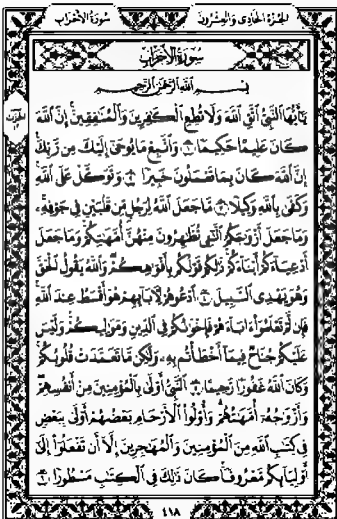 سُورَةُ الأَحْزَابِ
الجُزْءُ الحَادِي وَالعِشْرُونَ
سُورَةُ الأَحْزَابِ
بِسْمِ ٱللَّهِ ٱلرَّحْمَٰنِ ٱلرَّحِيمِ
يَٰٓأَيُّهَا ٱلنَّبِىُّ ٱتَّقِ ٱللَّهَ وَلَا تُطِعِ ٱلْكَٰفِرِينَ وَٱلْمُنَٰفِقِينَ إِنَّ ٱللَّهَ
كَانَ عَلِيمًا حَكِيمًا ١ وَٱتَّبِعْ مَا يُوحَىٰٓ إِلَيْكَ مِن رَّبِّكَ
إِنَّ ٱللَّهَ كَانَ بِمَا تَعْمَلُونَ خَبِيرًا ٢ وَتَوَكَّلْ عَلَى ٱللَّهِ
وَكَفَىٰ بِٱللَّهِ وَكِيلًا ٣ مَّا جَعَلَ ٱللَّهُ لِرَجُلٍ مِّن قَلْبَيْنِ فِى جَوْفِهِۦ
وَمَا جَعَلَ أَزْوَٰجَكُمُ ٱلَّٰٓـِٔى تُظَٰهِرُونَ مِنْهُنَّ أُمَّهَٰتِكُمْ وَمَا جَعَلَ
أَدْعِيَآءَكُمْ أَبْنَآءَكُمْ ذَٰلِكُمْ قَوْلُكُم بِأَفْوَٰهِكُمْ وَٱللَّهُ يَقُولُ ٱلْحَقَّ
وَهُوَ يَهْدِى ٱلسَّبِيلَ ٤ ٱدْعُوهُمْ لِءَابَآئِهِمْ هُوَ أَقْسَطُ عِندَ ٱللَّهِ
فَإِن لَّمْ تَعْلَمُوٓا۟ ءَابَآءَهُمْ فَإِخْوَٰنُكُمْ فِى ٱلدِّينِ وَمَوَٰلِيكُمْ وَلَيْسَ
عَلَيْكُمْ جُنَاحٌ فِيمَآ أَخْطَأْتُم بِهِۦ وَلَٰكِن مَّا تَعَمَّدَتْ قُلُوبُكُمْ
وَكَانَ ٱللَّهُ غَفُورًا رَّحِيمًا ٥ ٱلنَّبِىُّ أَوْلَىٰ بِٱلْمُؤْمِنِينَ مِنْ أَنفُسِهِمْ
وَأَزْوَٰجُهُۥٓ أُمَّهَٰتُهُمْ وَأُو۟لُوا۟ ٱلْأَرْحَامِ بَعْضُهُمْ أَوْلَىٰ بِبَعْضٍ
فِى كِتَٰبِ ٱللَّهِ مِنَ ٱلْمُؤْمِنِينَ وَٱلْمُهَٰجِرِينَ إِلَّآ أَن تَفْعَلُوٓا۟ إِلَىٰٓ
أَوْلِيَآئِكُم مَّعْرُوفًا كَانَ ذَٰلِكَ فِى ٱلْكِتَٰبِ مَسْطُورًا ٦
٤١٨